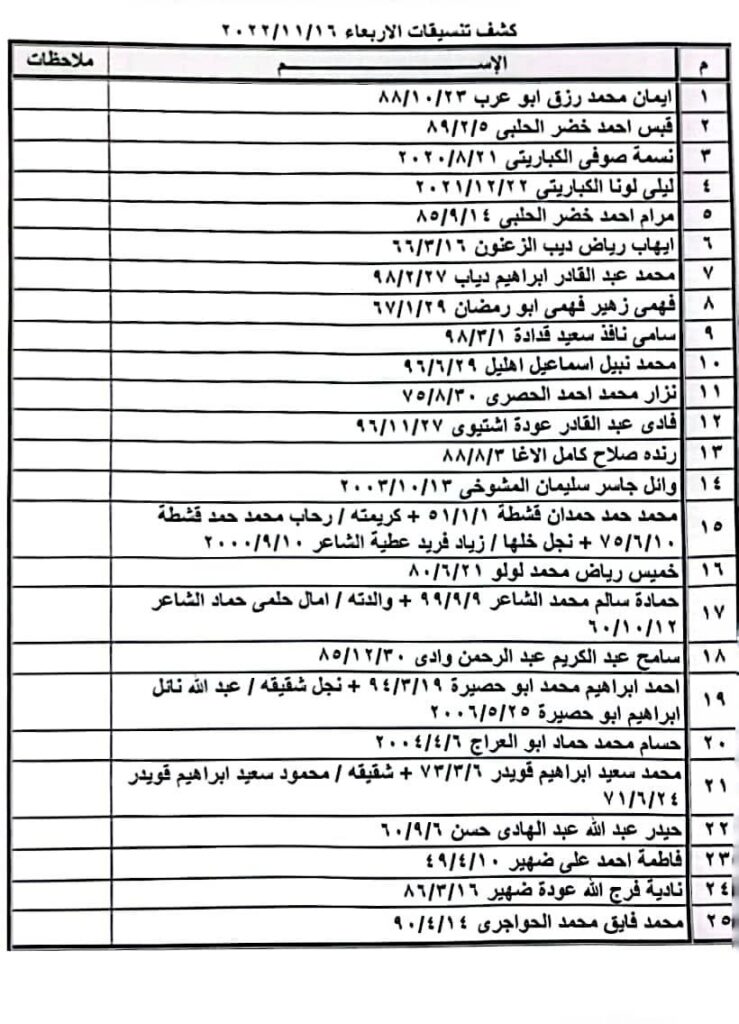 كشف تنسيقات الاربعاء ٢٠٢٢/١١/١٦
م الإســـــــــــم ملاحظات
١ ايمان محمد رزق ابو عرب ٨٨/١٠/٢٣
٢ قبس احمد خضر الحلبى ٨٩/٢/٥
٣ نسمة صوفى الكباريتى ٢٠٢٠/٨/٢١
٤ ليلى لونا الكباريتى ٢٠٢١/١٢/٢٢
٥ مرام احمد خضر الحلبى ٨٥/٩/١٤
٦ ايهاب رياض ديب الزعنون ٦٦/٣/١٦
٧ محمد عبد القادر ابراهيم دياب ٩٨/٢/٢٧
٨ فهمى زهير فهمى ابو رمضان ٦٧/١/٢٩
٩ سامى نافذ سعيد قدادة ٩٨/٣/١
١٠ محمد نبيل اسماعيل اهليل ٩٦/٦/٢٩
١١ نزار محمد احمد الحصرى ٧٥/٨/٣٠
١٢ فادى عبد القادر عودة اشتيوى ٩٦/١١/٢٧
١٣ رنده صلاح كامل الاغا ٨٨/٨/٣
١٤ وائل جاسر سليمان المشوخى ٢٠٠٣/١٠/١٣
١٥ محمد حمد حمدان قشطة ٥١/١/١ + كريمته / رحاب محمد حمد قشطة
٧٥/٦/١٠ + نجل خلها / زياد فريد عطية الشاعر ٢٠٠٠/٩/١٠
١٦ خميس رياض محمد لولو ٨٠/٦/٢١
١٧ حمادة سالم محمد الشاعر ٩٩/٩/٩ + والدته / امال حلمى حماد الشاعر
٦٠/١٠/١٢
١٨ سامح عبد الكريم عبد الرحمن وادى ٨٥/١٢/٣٠
١٩ احمد ابراهيم محمد ابو حصيرة ٩٤/٣/١٩ + نجل شقيقه / عبد الله نائل
ابراهيم ابو حصيرة ٢٠٠٦/٥/٢٥
٢٠ حسام محمد حماد ابو العراج ٢٠٠٤/٤/٦
٢١ محمد سعيد ابراهيم قويدر ٧٣/٣/٦ + شقيقه / محمود سعيد ابراهيم قويدر
٧١/٦/٢٤
٢٢ حيدر عبد الله عبد الهادى حسن ٦٠/٩/٦
٢٣ فاطمة احمد على ضهير ٤٩/٤/١٠
٢٤ نادية فرج الله عودة ضهير ٨٦/٣/١٦
٢٥ محمد فايق محمد الحواجرى ٩٠/٤/١٤